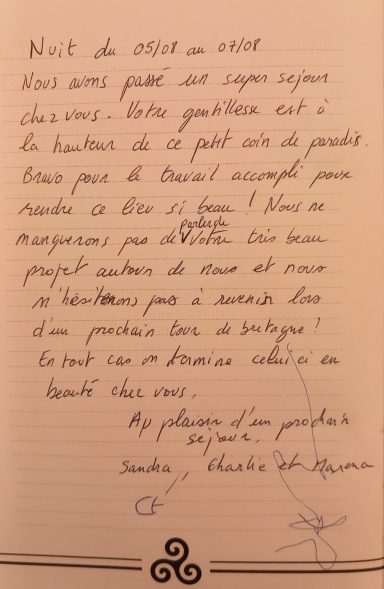 Nuit du 05/08 au 07/08
Nous avons passé un super sejour
chez vous. Votre gentillesse est à
la hauteur de ce petit coin de paradis.
Bravo pour le travail accompli pour
rendre ce lieu si beau ! Nous ne
manquerons pas de parler de votre très beau
projet autour de nous et nous
n'hésiterons pas à revenir lors
d'un prochain tour de bretagne !
En tout cas on termine celui ci en
beauté chez vous,
Au plaisir d'un prochain
sejour,
Sandra, Charlie et